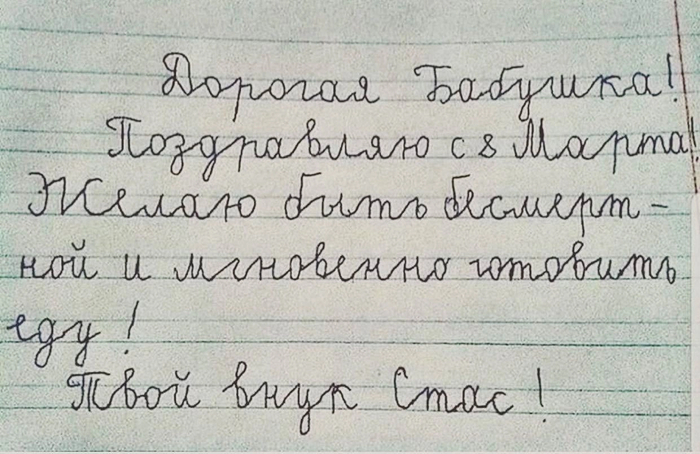 Дорогая Бабушка!
Поздравляю с 8 Марта!
Желаю быть бесмерт-
ной и мгновенно готовить
еду!
Твой внук Стас!